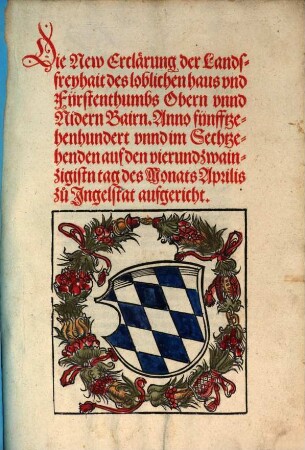 Die New Erclärung der Lands-
freyhait des loblichen haus vnd
Fürstenthumbs Obern vnnd
Nidern Bairn. Anno fünfftze-
henhundert vnnd im Sechtze-
henden auf den vierundzwain-
zigistn tag des Monats Aprilis
zů Ingelstat aufgericht.